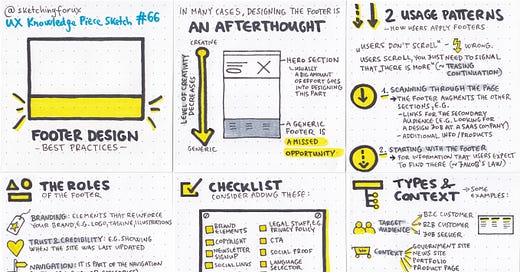 @sketchingforux
UX Knowledge Piece Sketch #66
FOOTER DESIGN
- BEST PRACTICES -
IN MANY CASES, DESIGNING THE FOOTER IS
AN AFTERTHOUGHT
CREATIVE
LEVEL OF CREATIVITY
DECREASES
GENERIC
HERO SECTION
USUALLY
A BIG AMOUNT
OF EFFORT GOES
INTO DESIGNING
THIS PART
A GENERIC
FOOTER IS
A MISSED
OPPORTUNITY
2 USAGE PATTERNS
- HOW USERS APPLY FOOTERS
„USERS DON'T SCROLL" - WRONG.
USERS SCROLL, YOU JUST NEED TO SIGNAL
THAT „THERE IS MORE" (~ TEASING
CONTINUATION)
1. SCANNING THROUGH THE PAGE
→ THE FOOTER AUGMENTS THE OTHER
SECTIONS, E.G.
- LINKS FOR THE SECONDARY
AUDIENCE (E.G. LOOKING FOR
A DESIGN JOB AT A SAAS COMPANY)
- ADDITIONAL INFO/PRODUCTS
2. STARTING WITH THE FOOTER
→ FOR INFORMATION THAT USERS EXPECT
TO FIND THERE (~ JAKOB'S LAW)
THE ROLES
OF THE FOOTER
BRANDING: ELEMENTS THAT REINFORCE
YOUR BRAND, E.G. LOGO, TAGLINE, ILLUSTRATIONS
TRUST & CREDIBILITY: E.G. SHOWING
WHEN THE SITE WAS LAST UPDATED
NAVIGATION: IT IS PART OF THE NAVIGATION
CHECKLIST
CONSIDER ADDING THESE:
BRAND
ELEMENTS
COPYRIGHT
NEWSLETTER
SIGNUP
SOCIAL LINKS
LEGAL STUFF, E.G.
PRIVACY POLICY
CTA
SOCIAL PROOF
LANGUAGE
SELECTOR
TYPES &
CONTEXT
SOME
EXAMPLES:
TARGET
AUDIENCE
B2C CUSTOMER
B2B CUSTOMER
JOB SEEKER
CONTEXT
GOVERNMENT SITE
NEWS SITE
PORTFOLIO
PRODUCT PAGE